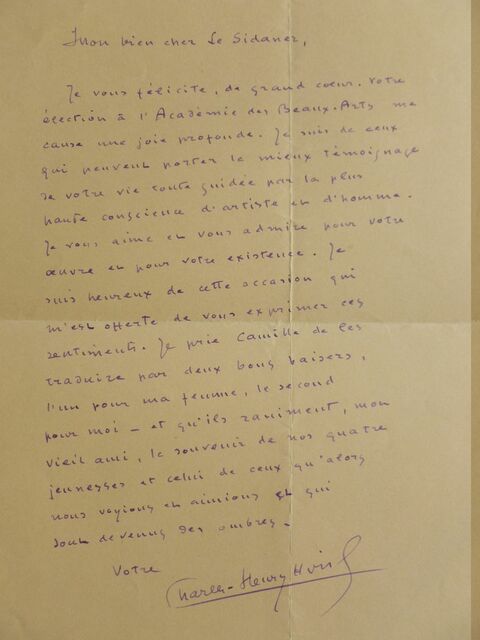 Mon bien cher Le Sidaner,
Je vous félicite, de grand cœur. Votre
élection à l'Académie des Beaux-Arts me
cause une joie profonde. Je suis de ceux
qui peuvent porter le mieux témoignage
de votre vie toute guidée par la plus
haute conscience d'artiste et d'homme.
Je vous aime et vous admire pour votre
œuvre et pour votre existence. Je
suis heureux de cette occasion qui
m'est offerte de vous exprimer ces
sentiments. Je prie Camille de les
traduire par deux bons baisers,
l'un pour ma femme, le second
pour moi — et qu'ils raniment, mon
vieil ami, le souvenir de nos quatre
jeunesses et celui de ceux qu'alors
nous voyions et aimions et qui
sont devenus des ombres.
Votre
Charles-Henry Hirsch